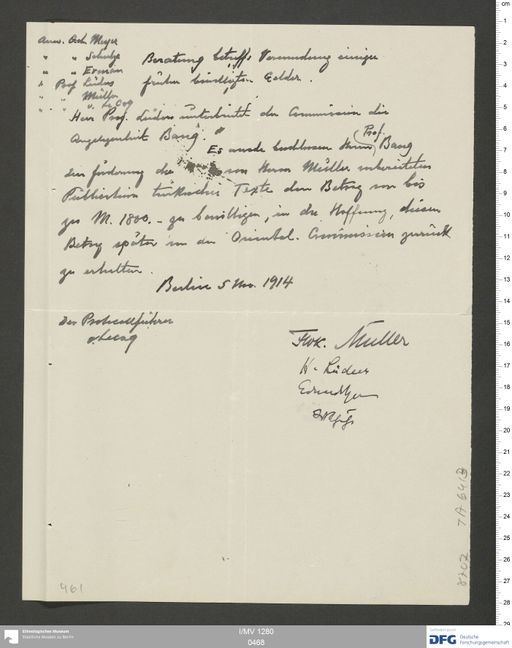 Anw. Geh. Meyer
" " Schulze
" " Erman
" Prof Lüders
" " Müller
" " v. Le Coq
Beratung betreffs Verwendung einiger
früher bewilligten Gelder.
Herr Prof. Lüders unterbreitet der Commission die
Angelegenheit Bang.
Es wurde beschlossen Herrn Prof. Bang
zur Förderung der von Herrn Müller unterbreiteten
Publication türkischer Texte den Betrag von bis
zu M. 1800.- zu bewilligen, in der Hoffnung, diesen
Betrag später von der Oriental. Commission zurück
zu erhalten.
Berlin 5 Nov. 1914
Der Protocollführer
v. Lecoq
FWK. Müller
H. Lüders
461
8702 TA 641
Ethnologisches Museum
Staatliche Museen zu Berlin
I/MV 1280
0468
DFG Deutsche
Forschungsgemeinschaft
cm
1
2
3
4
5
6
7
8
9
10
11
12
13
14
15
16
17
18
19
20
21
22
23
24
25
26
27
28
29